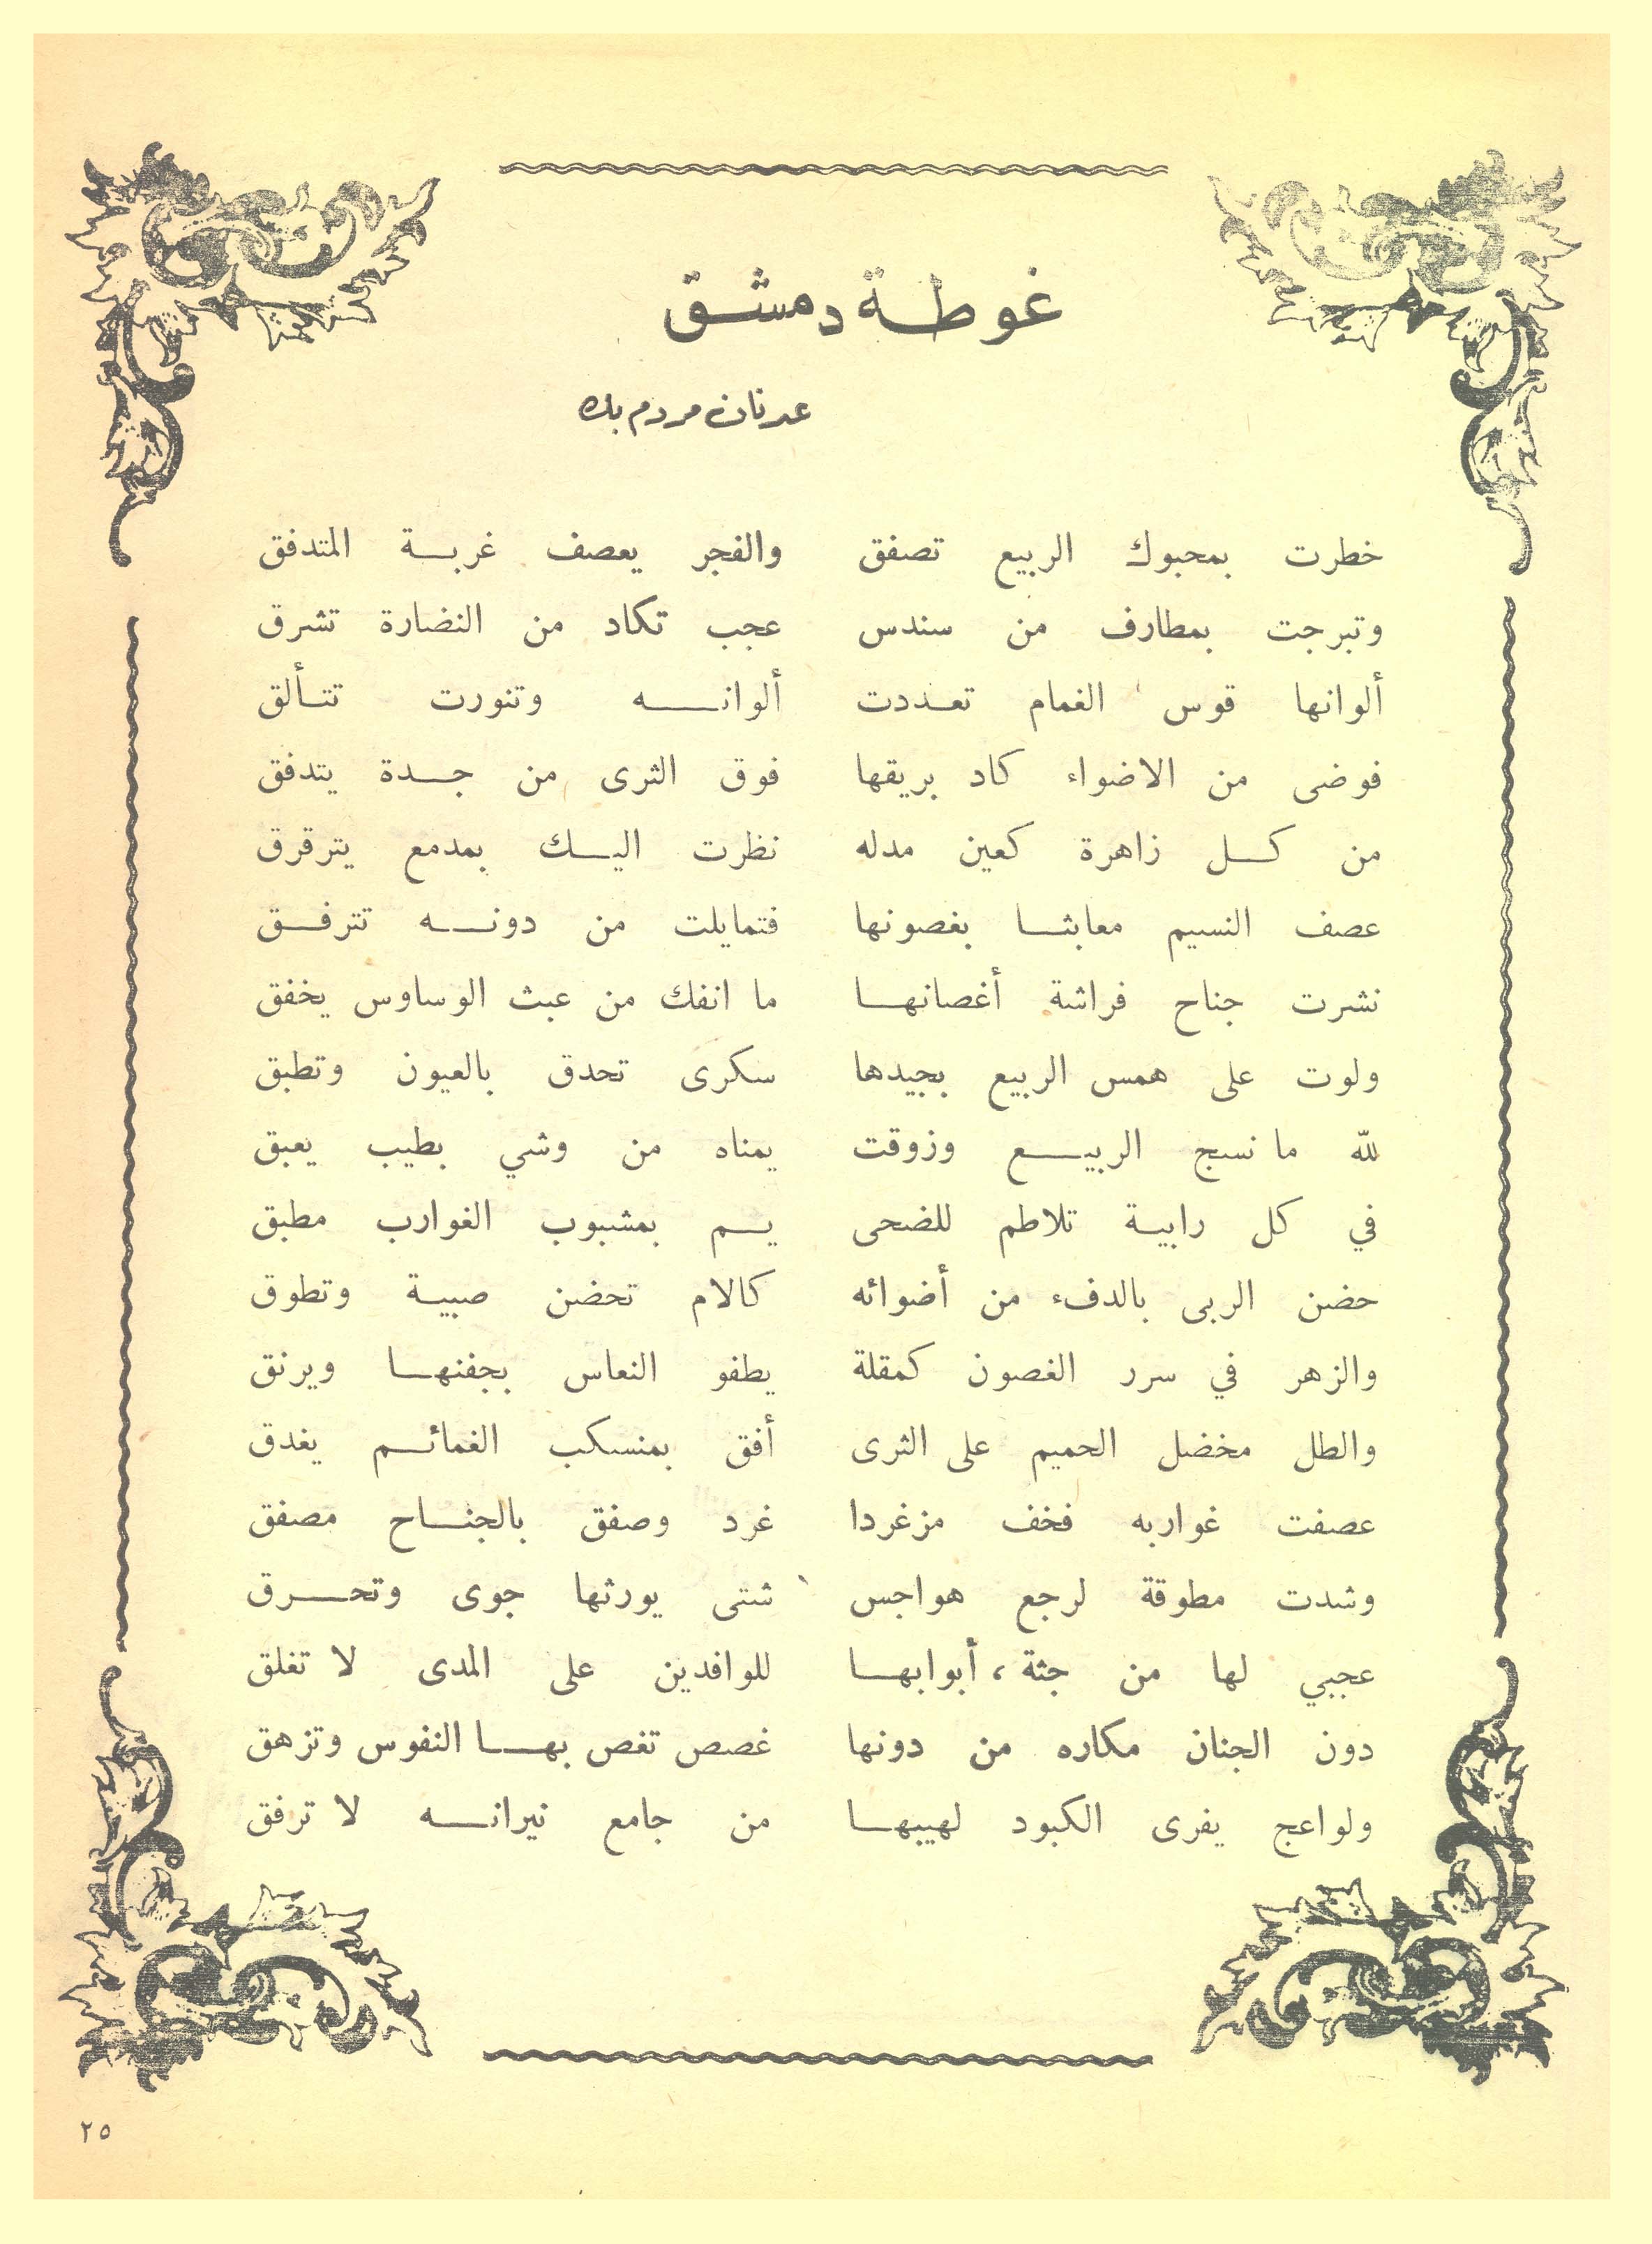 غوطة دمشق
عدنان مردم بك
خطرت بمحبوك الربيع تصفق والفجر يعصف غربة المتدفق
وتبرجت بمطارف من سندس عجب تكاد من النضارة تشرق
ألوانها قوس الغمام تعددت ألوانه وتنورت تتألق
فوضى من الاضواء كاد بريقها فوق الثرى من جدة يتدفق
من كل زاهرة كعين مدله نظرت اليك بمدمع يترقرق
عصف النسيم معابثا بغصونها فتمايلت من دونه تترفق
نشرت جناح فراشة أغصانها ما انفك من عبث الوساوس يخفق
ولوت على همس الربيع بجيدها سكرى تحدق بالعيون وتطبق
لله ما نسج الربيع وزوقت يمناه من وشي بطيب يعبق
في كل رابية تلاطم للضحى يم بمشبوب الغوارب مطبق
حضن الربى بالدفء من أضوائه كالام تحضن صبية وتطوق
والزهر في سرر الغصون كمقلة يطفو النعاس بجفنها ويرنق
والطل مخضل الحميم على الثرى أفق بمنسكب الغمائم يغدق
عصفت غواربه فخف مزغردا غرد وصفق بالجناح مصفق
وشدت مطوقة لرجع هواجس شتى يورثها جوى وتحرق
عجبي لها من جثة، أبوابها للوافدين على المدى لا تغلق
دون الجنان مكاره من دونها غصص تغص بها النفوس وتزهق
ولواعج يفرى الكبود لهيبها من جامع نيرانه لا ترفق
٢٥